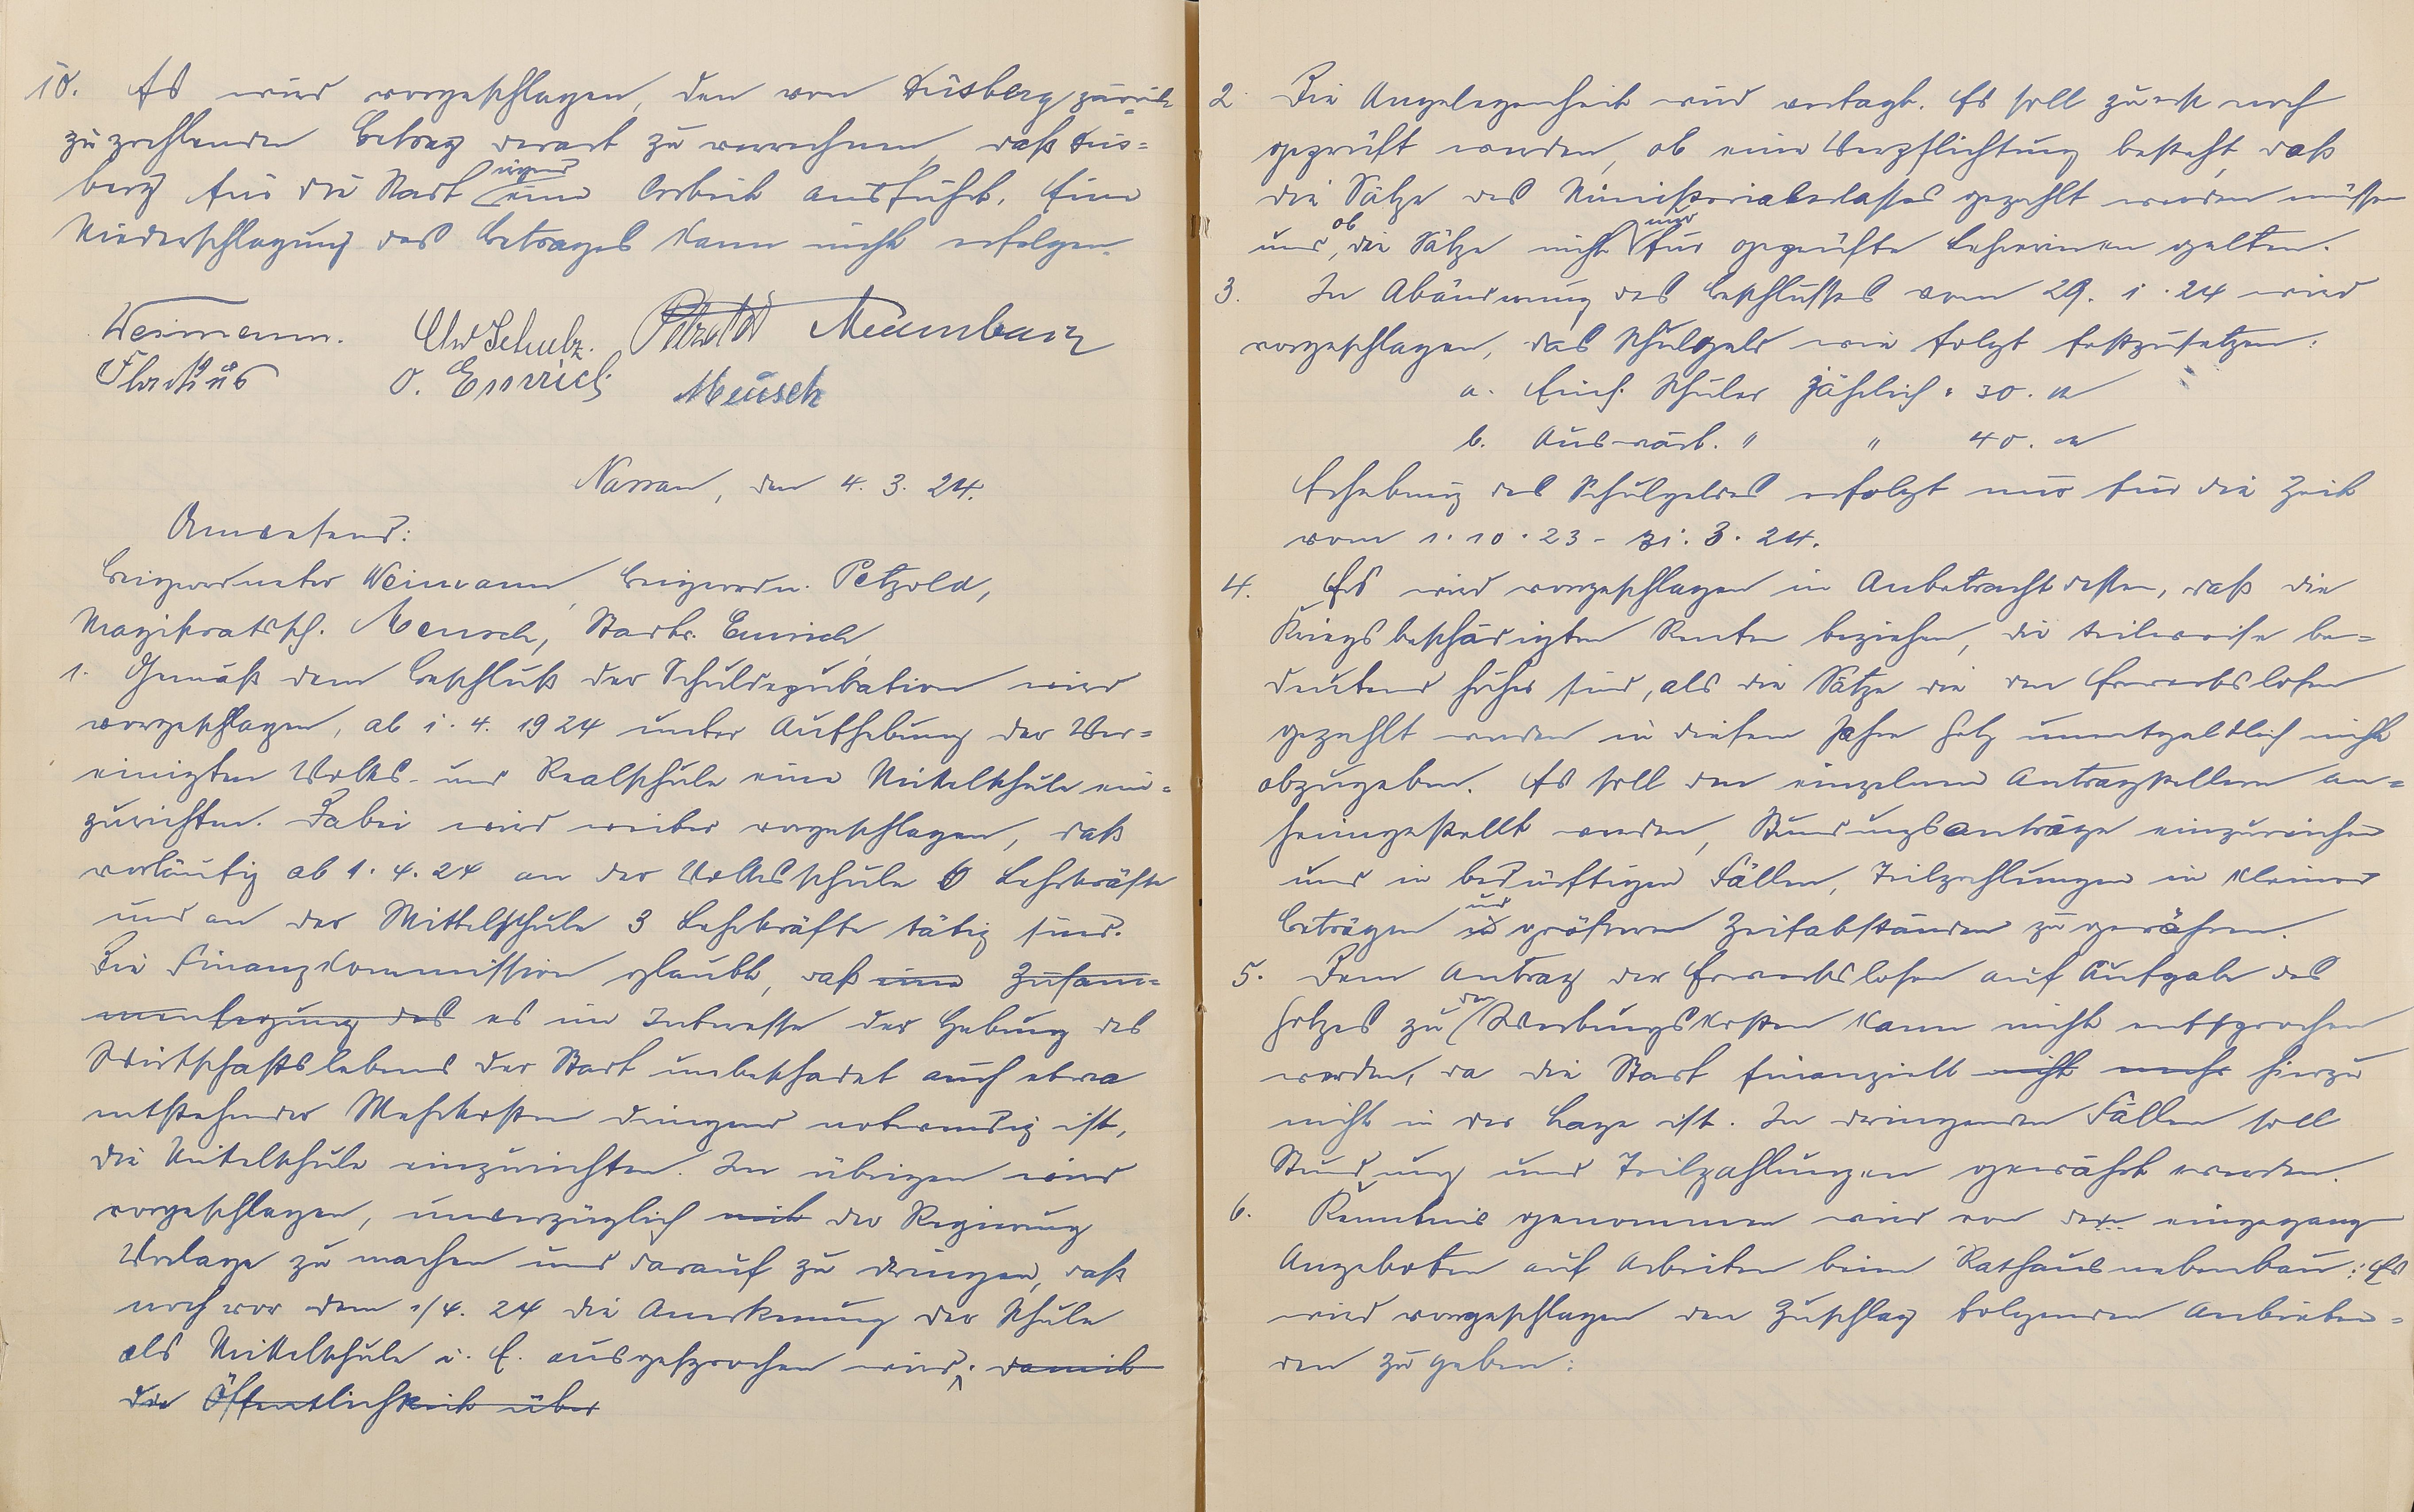 10. Es wird vorgeschlagen, den von Düsberg zurück
zuzahlenden Betrag derart zu verrechnen, daß Düs=
berg für die Stadt irgend eine Arbeit ausführt. Eine
Niederschlagung des Betrages kann nicht erfolgen.
Weimann. Chr Schulz. Petzold Meumbauer
Flactius O. Emrich Meusch
Nassau, den 4. 3. 24.
Anwesend:
Beigeordneter Weimann, Beigeordn. Petzold,
Magistratssch. Meusch, Stadtv. Emrich,
1. Gemäß dem Beschluß der Schuldeputation wird
vorgeschlagen, ab 1. 4. 1924 unter Aufhebung der Ver=
einigten Volks- und Realschule eine Mittelschule ein=
zurichten. Dabei wird weiter vorgeschlagen, daß
vorläufig ab 1. 4. 24 an der Volksschule 6 Lehrkräfte
und an der Mittelschule 3 Lehrkräfte tätig sind.
Die Finanzkommission glaubt, daß eine Zusam=
menlegung des es im Interesse der Hebung des
Wirtschaftslebens der Stadt unbeschadet auch etwa
entstehender Mehrkosten dringend notwendig ist,
die Mittelschule einzurichten. Im übrigen wird
vorgeschlagen, unverzüglich mit der Regierung
Vorlage zu machen und darauf zu dringen, daß
noch vor dem 1/4. 24 die Anerkennung der Schule
als Mittelschule i. E. ausgesprochen wird. damit
die Öffentlichkeit über
2. Die Angelegenheit wird vertagt. Es soll zuerst noch
geprüft werden, ob eine Verpflichtung besteht, daß
die Sätze des Ministerialerlasses gezahlt werden müssen
und, ob die Sätze nicht nur für geprüfte Lehrerinnen gelten.
3. In Abänderung des Beschlusses vom 29. 1. 24 wird
vorgeschlagen, das Schulgeld wie folgt festzusetzen:
a. Einh. Schüler jährlich: 30. M
b. Auswärt. " " 40. M
Erhebung des Schulgeldes erfolgt nur für die Zeit
vom 1. 10. 23 - 31. 3. 24.
4. Es wird vorgeschlagen in Anbetracht dessen, daß die
Kriegsbeschädigten Renten beziehen, die teilweise be=
deutend höher sind, als die Sätze die den Erwerbslosen
gezahlt werden in diesem Jahre Holz unentgeldlich nicht
abzugeben. Es soll den einzelnen Antragstellern an=
heimgestellt werden, Stundungsanträge einzureichen
und in bedürftigen Fällen, Teilzahlungen in kleinen
Beträgen und in größeren Zeitabständen zu gewähren.
5. Dem Antrag der Erwerbslosen auf Aufgabe des
Holzes zu den Werbungskosten kann nicht entsprochen
werden, da die Stadt finanziell nicht mehr hierzu
nicht in der Lage ist. In dringenden Fällen soll
Stundung und Teilzahlungen gewährt werden.
6. Kenntnis genommen wird von den eingegang
Angeboten auf Arbeiten beim Rathausnebenbau: Es
wird vorgeschlagen den Zuschlag folgenden Anbieten=
den zu geben: